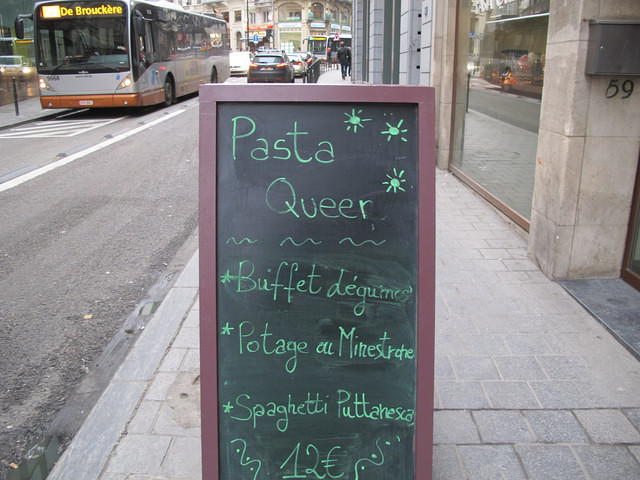 De Brouckère
Pasta
Queer
*Buffet dégumes
*Potage ou Minestrone
*Spaghetti Puttanesca
12€
59